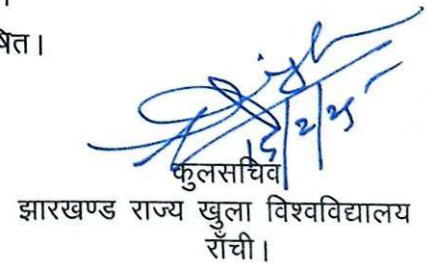 षित।
15/2/25
कुलसचिव
झारखण्ड राज्य खुला विश्वविद्यालय
राँची।